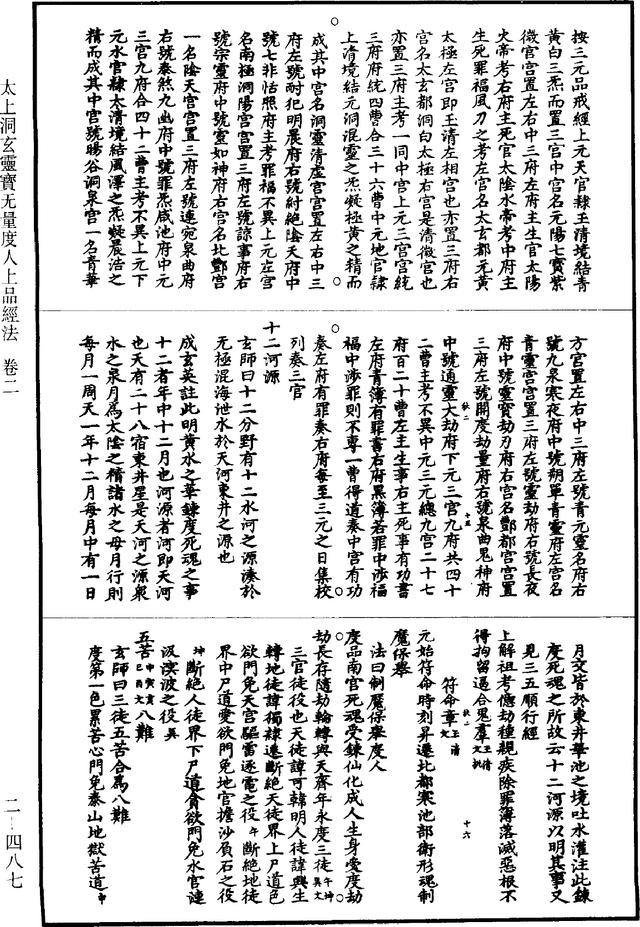 太上洞玄靈寶无量度人上品經法 卷二
二—四八七
按三元品戒經上元天官隸玉清境結青
黃白三炁而置三宮中宮名元陽七寶紫
微宮宮置左右中三府左府主生官太陽
火帝考右府主死官太陰水帝考中府主
生死罪福風刀之考左宮名太玄都元黃
太極左宮即玉清左相宮也亦置三府右
宮名太玄都洞白太極右宮是清微宮也
亦置三府主考一同中宮上元三宮宮統
三府府統四曹合三十六曹中元地官隸
上清境結元洞混靈之炁凝極黃之精而
成其中宮名洞靈清虛宮宮置左右中三
府左號耐犯明晨府右號紂絕陰天府中
號七非恬照府主考罪福不異上元左宮
名南極洞陽宮宮置三府左號諒事府右
號宗靈府中號靈如神府右宮名北酆宮
一名陰天宮宮置三府左號連宛泉曲府
右號泰煞九幽府中號罪炁咸池府中元
三宮九府合四十二曹主考不異上元下
元水官隸太清境結風澤之炁凝晨浩之
精而成其中宮號暘谷洞泉宮一名青華
方宮置左右中三府左號青元靈名府右
號九泉寒夜府中號朔單青靈府左宮名
青靈宮宮置三府左號靈劫府右號長夜
府中號靈寶劫刃府右宮名酆都宮宮置
三府左號開度劫量府右號泉曲鬼神府
中號通靈大劫府下元三宮九府共四十
二曹主考不異中元三元總九宮二十七
府百二十曹左主生事右主死事有功書
左府青簿有罪書右府黑簿若罪中涉福
福中涉罪則不專一曹得道奏中宮有功
奏左府有罪奏右府每至三元之日集校
列奏三官
十二河源
玄師曰十二分野有十二水河之源湊於
无極混海泄水於天河東井之源也
成玄英註此明黃水之華鍊度死魂之事
十二者年中十二月也河源者河即天河
也天有二十八宿東井星是天河之源泉
水之泉月為太陰之精諸水之母月行則
每月一周天一年十二月每月中有一日
月交皆於東井華池之境吐水灌注此鍊
度死魂之所故云十二河源以明其事又
見三五順行經
上解祖考億劫種親疾除罪簿落滅惡根不
得拘留逼合鬼羣
符命章
元始符命時刻昇遷北都寒池部衛形魂制
魔保舉
法曰制魔保舉度人
度品南宮死魂受鍊仙化成人生身受度劫
劫長存隨劫輪轉與天齊年永度三徒
三官徒役也天徒諱可韓明人徒諱興生
轉地徒諱獨隸違斷絕天徒界上尸道色
欲門免天宮驅雷逐電之役斷絕地徒
界中尸道愛欲門免地官擔沙負石之役
斷絕人徒界下尸道貪欲門免水官連
汲溟波之役
五苦八難
玄師曰三徒五苦合為八難
度第一色累苦心門免泰山地獄苦道